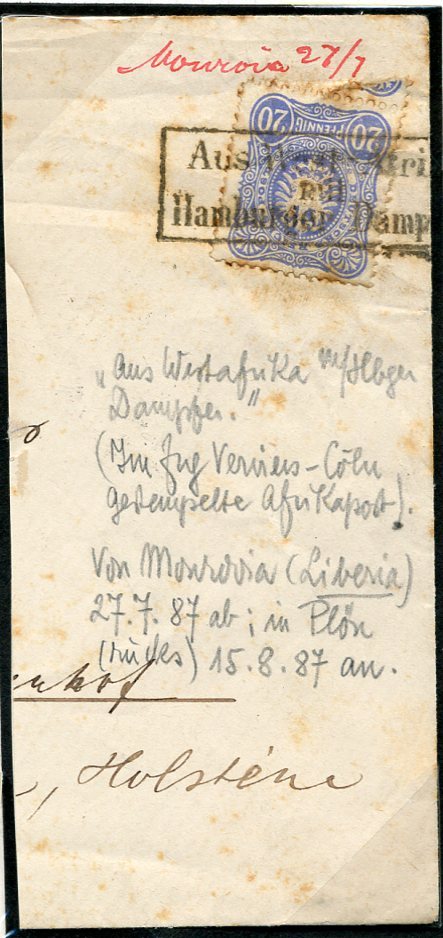 Monrovia 27/7
20 PFENNIG 20
Aus West-Afri
mit
Hamburger Damp
„Aus Westafrika m/Hbger
Dampfer."
(Im Zug Verviers-Cöln
gestempelte Afrikapost).
Von Monrovia (Liberia)
27.7.87 ab; in Plön
(rücks) 15.8.87 an.
nhof
, Holsteine